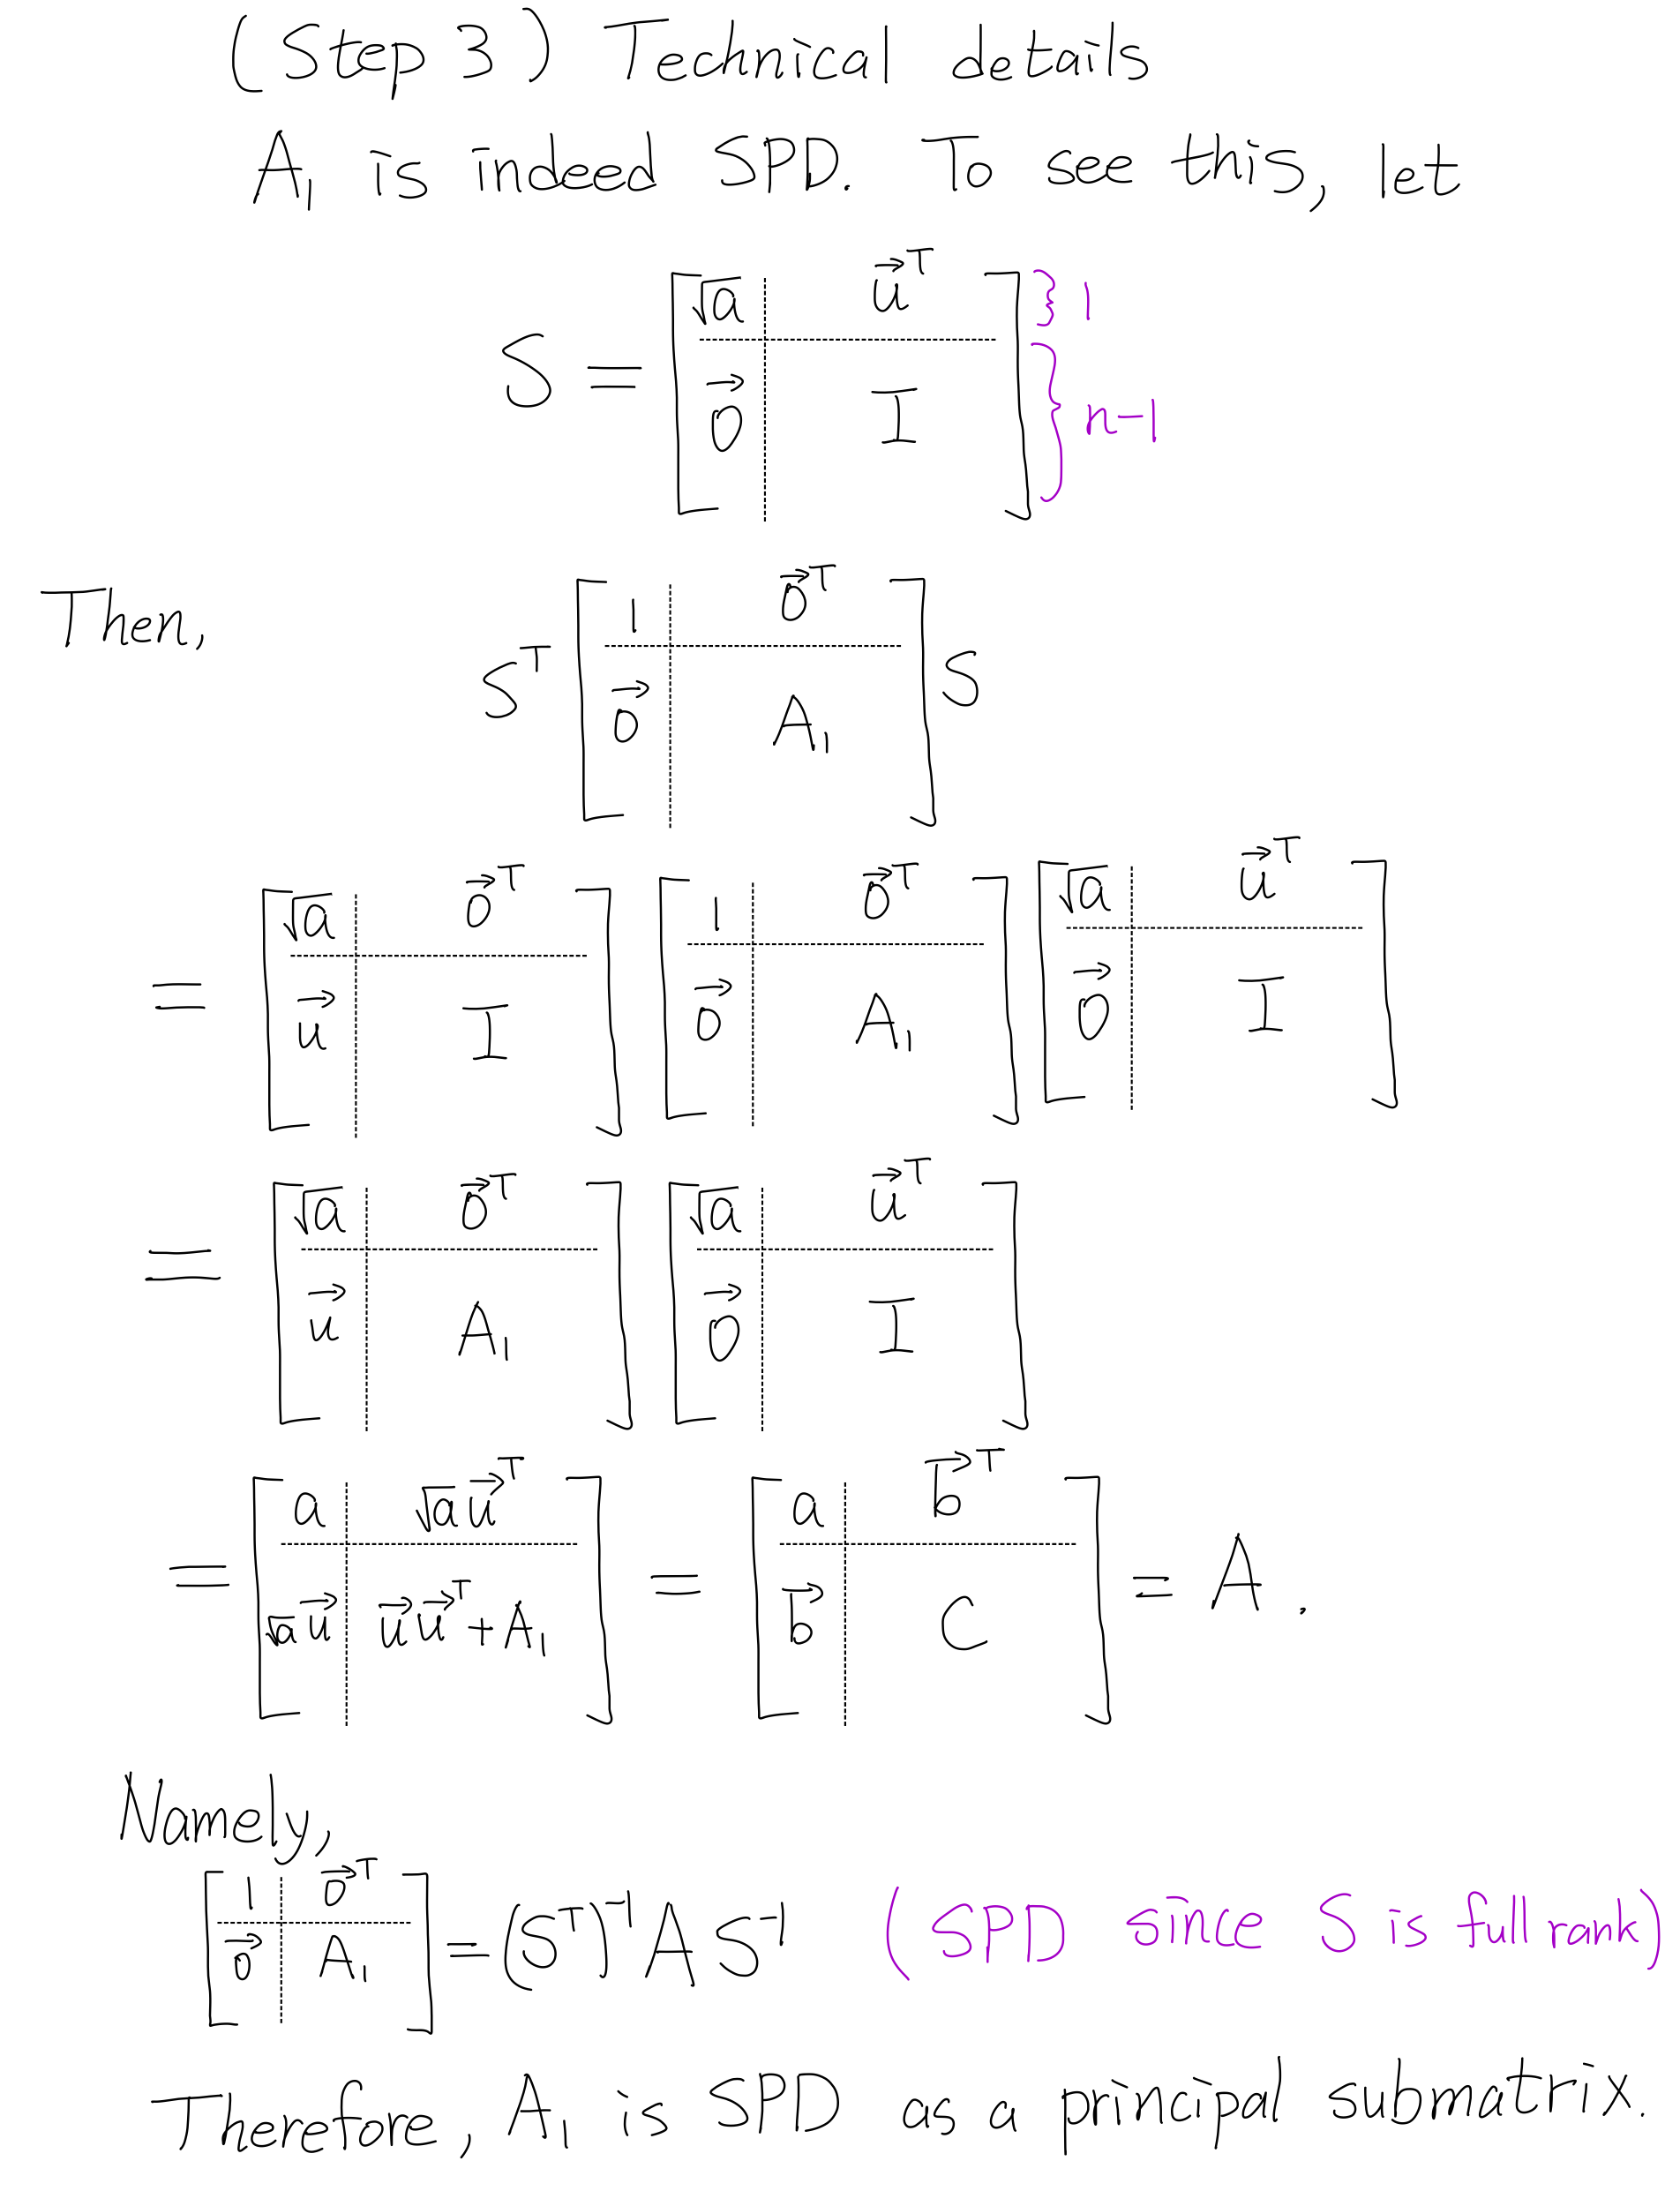 (Step 3) Technical details
A₁ is indeed SPD. To see this, let
S = [ √a  u⃗ᵀ ; 0⃗  I ] } 1 } n-1
Then,
Sᵀ [ 1  0⃗ᵀ ; 0⃗  A₁ ] S
= [ √a  0⃗ᵀ ; u⃗  I ] [ 1  0⃗ᵀ ; 0⃗  A₁ ] [ √a  u⃗ᵀ ; 0⃗  I ]
= [ √a  0⃗ᵀ ; u⃗  A₁ ] [ √a  u⃗ᵀ ; 0⃗  I ]
= [ a  √a u⃗ᵀ ; √a u⃗  u⃗ u⃗ᵀ + A₁ ] = [ a  b⃗ᵀ ; b⃗  C ] = A.
Namely,
[ 1  0⃗ᵀ ; 0⃗  A₁ ] = (Sᵀ)⁻¹ A S⁻¹ (SPD since S is full rank)
Therefore, A₁ is SPD as a principal submatrix.